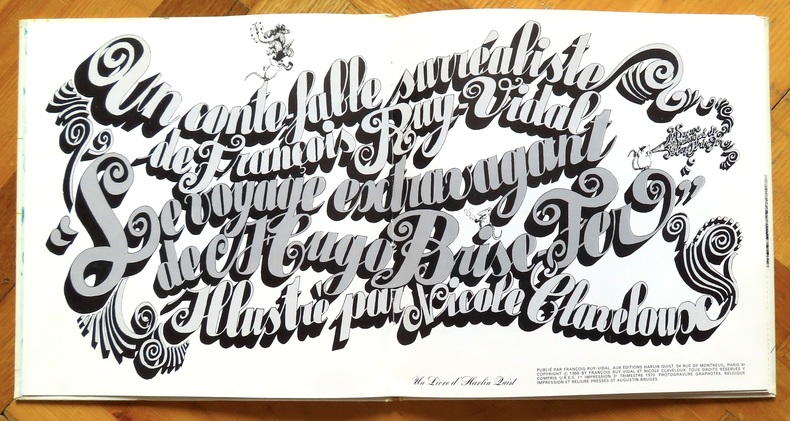 Un conte-fable surréaliste
de François Ruy-Vidal
"Le voyage extravagant
de Hugo Brise-Fer"
Illustré par Nicole Claveloux
Un Livre d'Harlin Quist
PUBLIÉ PAR FRANÇOIS RUY-VIDAL, AUX ÉDITIONS HARLIN QUIST, 54 RUE DE MONTREUIL, PARIS XI
COPYRIGHT © 1968 BY FRANÇOIS RUY-VIDAL ET NICOLE CLAVELOUX. TOUS DROITS RÉSERVÉS Y
COMPRIS U.R.S.S. 1re IMPRESSION 3e TRIMESTRE 1970 PHOTOGRAVURE GRAPHOTEX, BELGIQUE
IMPRESSION ET RELIURE PRESSES ST AUGUSTIN BRUGES